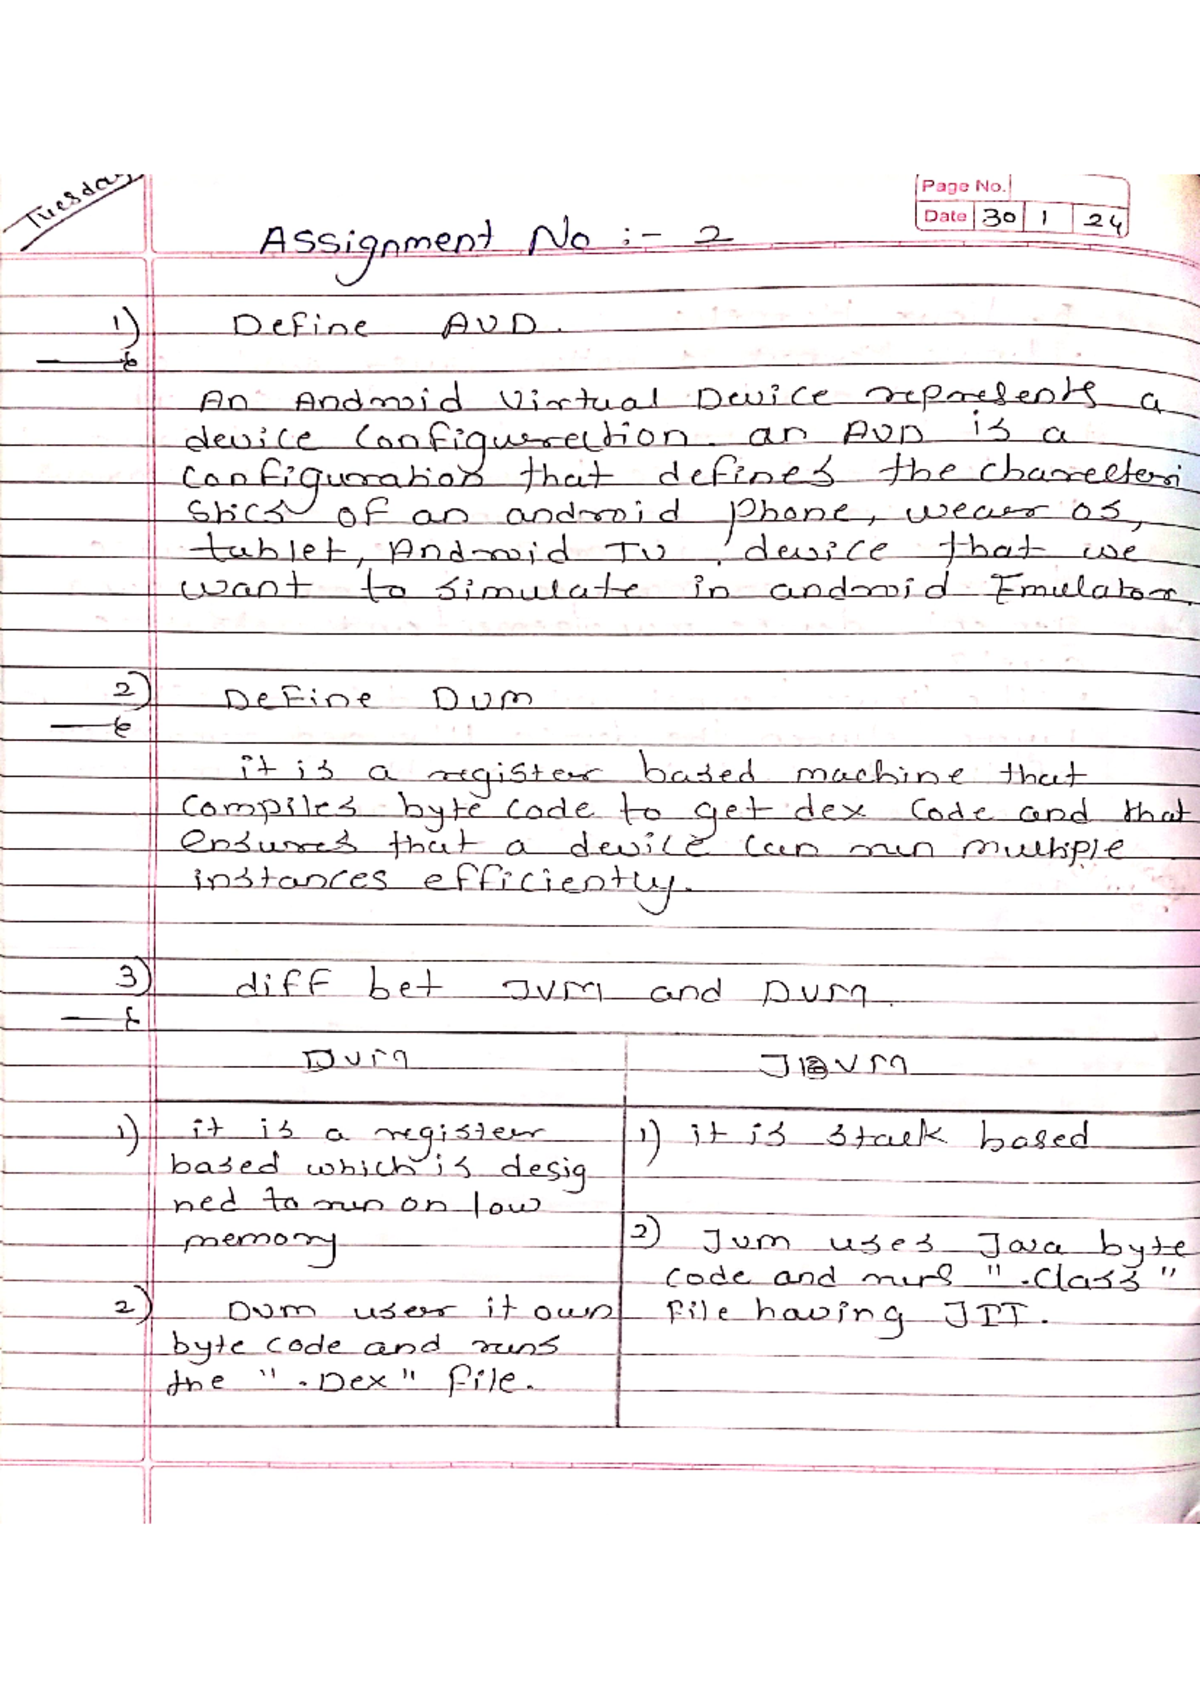 Tuesday
Page No.
Date 30 1 24
Assignment No :- 2
1) Define AVD.
An Android Virtual Device represents a
device Configuration. an AVD is a
Configuration that defines the characteri
stics of an android phone, wear os,
tablet, Android TV device that we
want to simulate in android Emulator.
2) Define DVM
it is a register based machine that
Compiles byte code to get dex code and that
ensures that a device can run multiple
instances efficiently.
3) diff bet JVM and DVM.
DVM
1) it is a register
based which is desig
ned to run on low
memory
2) DVM user it own
byte code and runs
the ".Dex" file.
JVM
1) it is stack based
2) Jvm uses Java byte
code and runs ".Class"
file having JIT.